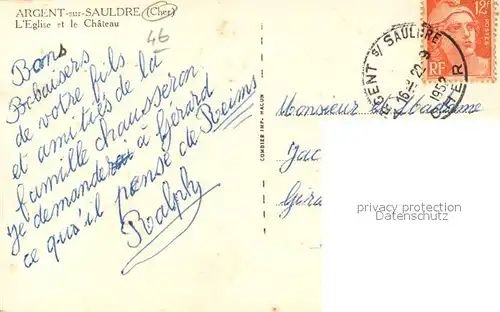 ARGENT-sur-SAULDRE (Cher)
L'Eglise et le Château
46
Bons
Bebaisers
de votre fils
et amitiés de la
famille chausseron
je demanderai à Gérard
ce qu'il pense de Reims
Ralph
COMBIER IMP. MACON
ARGENT s/ SAULDRE
16H 22-8
1952
CHER
12F
POSTES
RF
Monsieur et Madame
Jac
Géra
privacy protection
Datenschutz